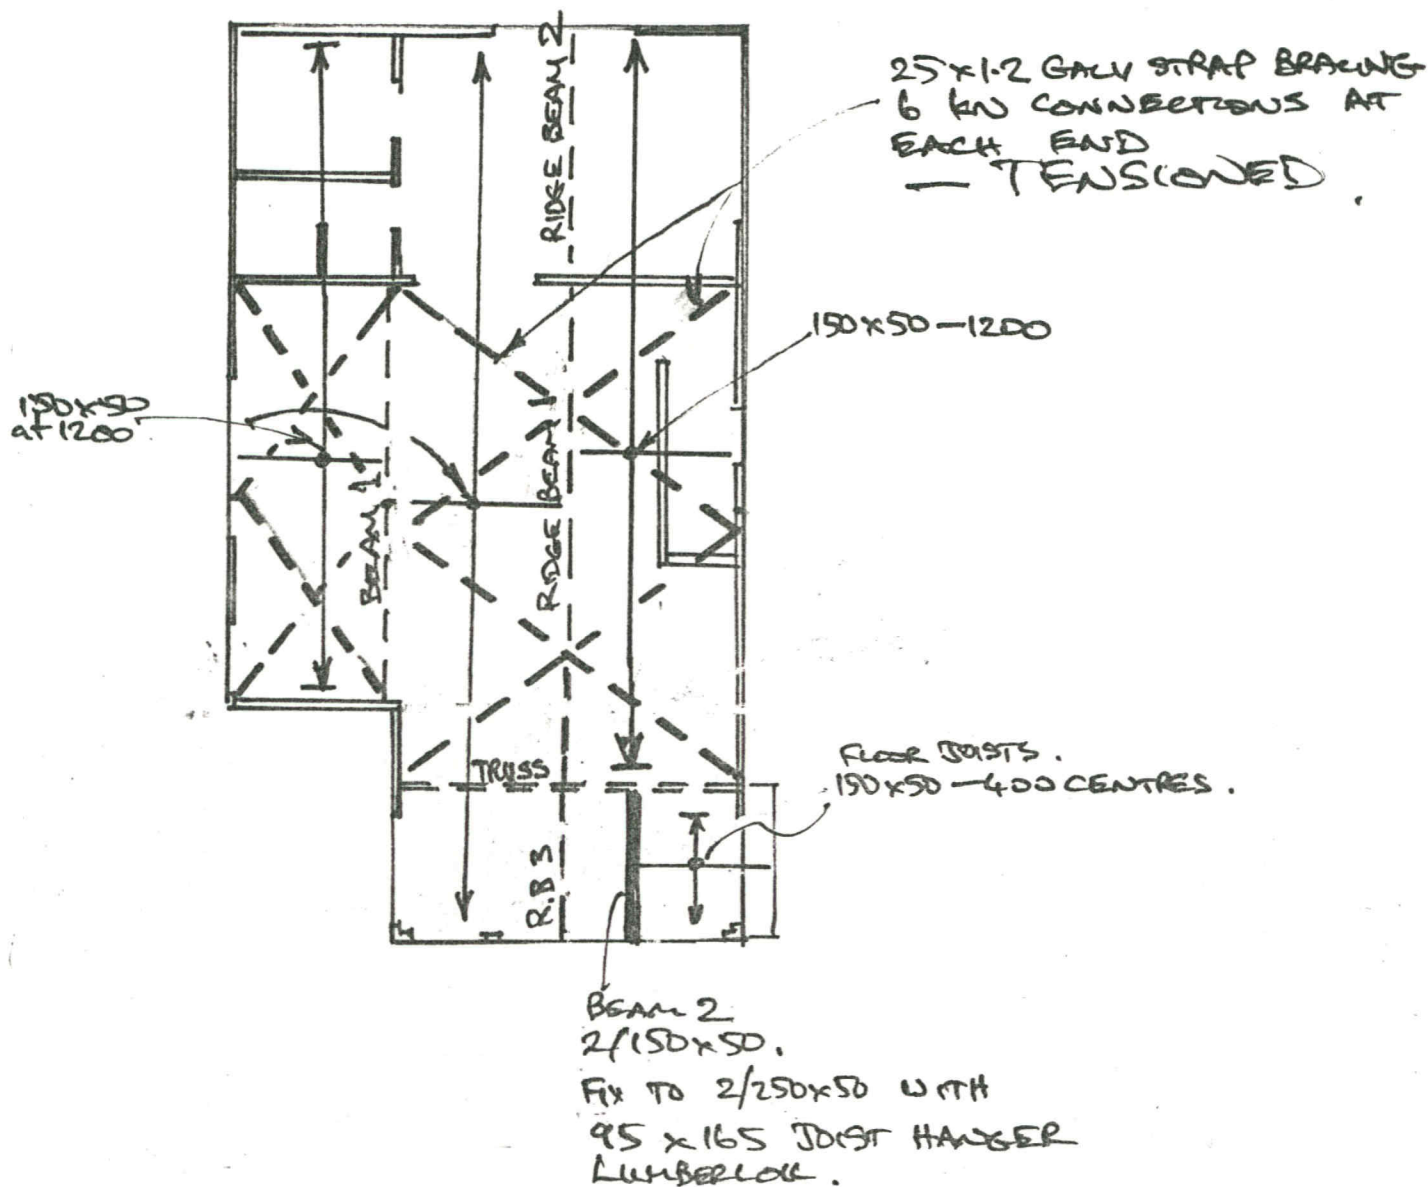 RIDGE BEAM 2
25x1.2 GALV STRAP BRACING
6 KN CONNECTIONS AT
EACH END
— TENSIONED.
150x50—1200
150x50
at 1200
BEAM 1
RIDGE BEAM 1
TRUSS
FLOOR JOISTS.
150x50—400 CENTRES.
R.B 3
BEAM 2
2/150x50.
FIX TO 2/250x50 WITH
95 x 165 JOIST HANGER
LUMBERLOK.